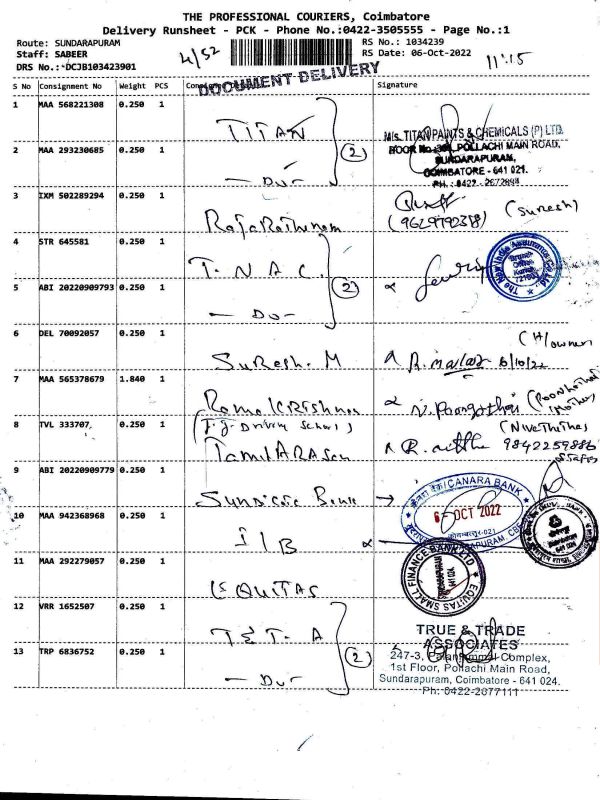 THE PROFESSIONAL COURIERS, Coimbatore
Delivery Runsheet - PCK - Phone No.:0422-3505555 - Page No.:1
Route: SUNDARAPURAM
Staff: SABEER
DRS No.: DCJB103423901
4/52
RS No.: 1034239
RS Date: 06-Oct-2022
11:15
DOCUMENT DELIVERY
S No Consignment No Weight PCS Signature
1 MAA 568221308 0.250 1 TITAN
M/s. TITAN PAINTS & CHEMICALS (P) LTD.
2 MAA 293230685 0.250 1 - Do - (2)
POLLACHI MAIN ROAD,
SUNDARAPURAM,
COIMBATORE - 641 021.
3 IXM 502289294 0.250 1 RajaRathinam (Suresh)
4 STR 645581 0.250 1 T. N. A. C.
The New India Assurance Co. Ltd.
5 ABI 20220909793 0.250 1 - Do - (2)
6 DEL 70092057 0.250 1 SuResh. M (H/owner)
6/10/22
7 MAA 565378679 1.840 1 RamaKRishnan
8 TVL 333707, 0.250 1 TamilARASan
9842259886
9 ABI 20220909779 0.250 1
CANARA BANK
6 OCT 2022
10 MAA 942368968 0.250 1 IIB
11 MAA 292279057 0.250 1 EQUITAS
EQUITAS SMALL FINANCE BANK LTD
12 VRR 1652507 0.250 1 T & T. A
13 TRP 6836752 0.250 1 - Do - (2)
TRUE & TRADE
ASSOCIATES
247-3, Palaniammal Complex,
1st Floor, Pollachi Main Road,
Sundarapuram, Coimbatore - 641 024.
Ph: 0422-2677111